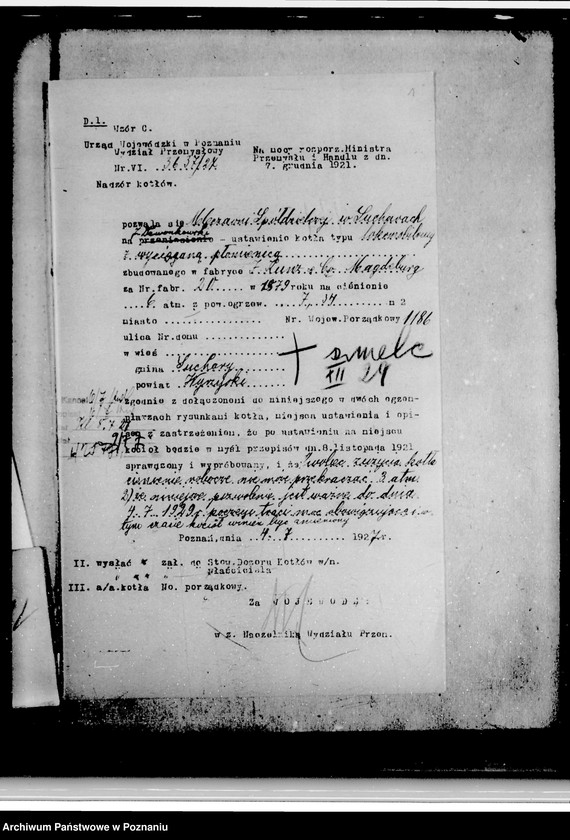 1
D.1.
Wzór C.
Urząd Wojewódzki w Poznaniu
Wydział Przemysłowy
Nr.VI.
Na mocy rozporz. Ministra
Przemysłu i Handlu z dn.
7. grudnia 1921.
Nadzór kotłów.
pozwala się w Sucharach
na przeniesienie - ustawienie kotła typu
z wyciąganą płomienicą
zbudowanego w fabryce Magdeburg
za Nr.fabr. 20 w 1879 roku na ciśnienie
6. atm. z pow.ogrzew. 7,34 m 2
miasto Nr. Wojew.Porządkowy 1186
ulica Nr.domu
w wsi
gmina Suchary
powiat Wyrzyski
szmelc
XII 29
zgodnie z dołączonemi do niniejszego w dwóch egzem-
plarzach rysunkami kotła, miejsca ustawienia i opi-
sem z zastrzeżeniem, że po ustawieniu na miejscu
kocioł będzie w myśl przepisów dn.8.listopada 1921
sprawdzony i wypróbowany, i że wobec zużycia kotła
ciśnienie robocze nie może przekraczać 3 atm.
2) że niniejsze pozwolenie jest ważne do dnia
4.7.1929r. poczem traci moc obowiązującą i w
tym czasie kocioł winien być zmieniony
Poznań,dnia 4.7 1927r.
II. wysłać zał. do Stow.Dozoru Kotłów w/m.
" " " właściciela
III. a/a.kotła No. porządkowy.
Za WOJEWODĘ:
w z. Naczelnika Wydziału Przem.
Archiwum Państwowe w Poznaniu